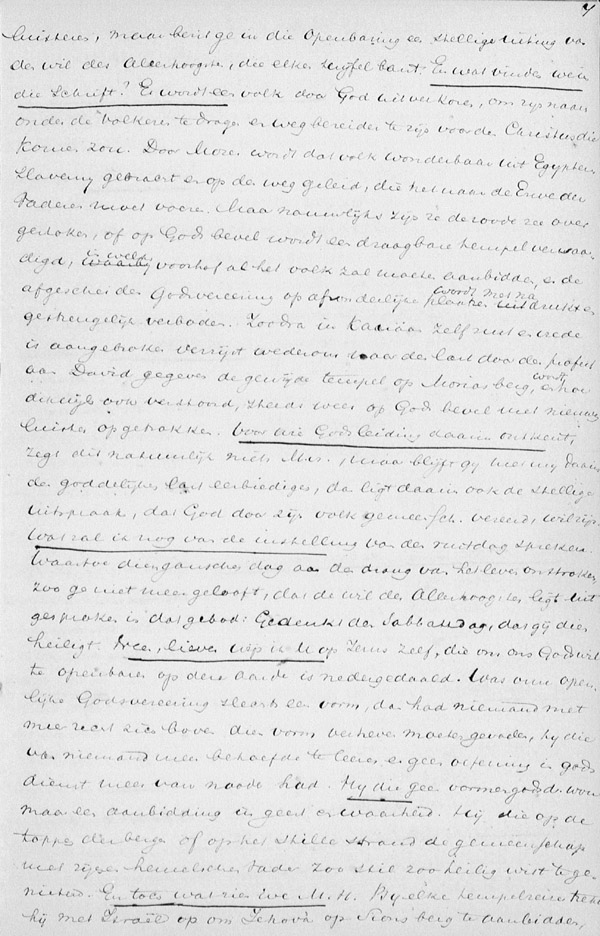 7
luisteren, maar bezit ge in die Openbaring een stellige uiting van
den wil des Allerhoogsten, die elken twijfel bant. En wat vinden we in
die Schrift? Er wordt een volk door God uitverkoren, om zijn naam
onder de volkeren te dragen en wegbereider te zijn voor den Christus die
komen zou. Door Mozes wordt dat volk wonderbaar uit Egypten
slaverny gebracht en op den weg geleid, die het naar de Erve der
Vaderen moet voeren. Maar nauwlijks zijn ze de roode zee over
gestoken, of op Gods bevel wordt een draagbare tempel vervaar
digd, in welks voorhof al het volk zal moeten aanbidden, en de
afgescheiden Godsvereering op afzonderlijke plaatsen wordt met na
druk
gestrengelijk verboden. Zoodra in Kanaan zelf rust en vrede
is aangebroken verrijst wederom naar den last door den profeet
aan David gegeven de gewijde tempel op Morias berg, en hoe
dikwijls ook verstoord, steeds weer op Gods bevel met nieuwen
luister opgetrokken. Voor wie Gods leiding daarin ontkent,
zegt dit natuurlijk niets M.H., maar blijft gy met my daarin
den goddelijken last eerbiedigen, dan ligt daarin ook de stellige
uitspraak, dat God door zijn volk gemeensch. vereerd wil zijn.
Wat zal ik nog van de instelling van den rustdag spreken.
Waartoe dien ganschen dag aan den drang van het leven onttrokken,
zoo ge niet meer gelooft, dat de wil des Allerhoogsten ligt uit
gesproken in dat gebod: Gedenkt den Sabbatdag, dat gij dien
heiligt. Nee, liever wijs ik U op Jezus zelf, die om ons Gods wil
te openbaren op deze aarde is nedergedaald. Was onze open
lijke Godsvereering slechts een vorm, dan had niemand met
meer recht zich boven dien vorm verheven moeten gevoelen, hy die
van niemand meer behoefde te leeren en geen oefening in gods
dienst meer van noode had. Hy die geen vormengodsd. wou
maar een aanbidding in geest en waarheid. Hij die op de
toppen der bergen of op het stille strand de gemeenschap
met zijnen hemelschen Vader zoo stil zoo heilig wist te ge
nieten. En toch wat zien we M.H. By elke tempelreize trekt
hij met Israël op om Jehova op Sions berg te aanbidden,